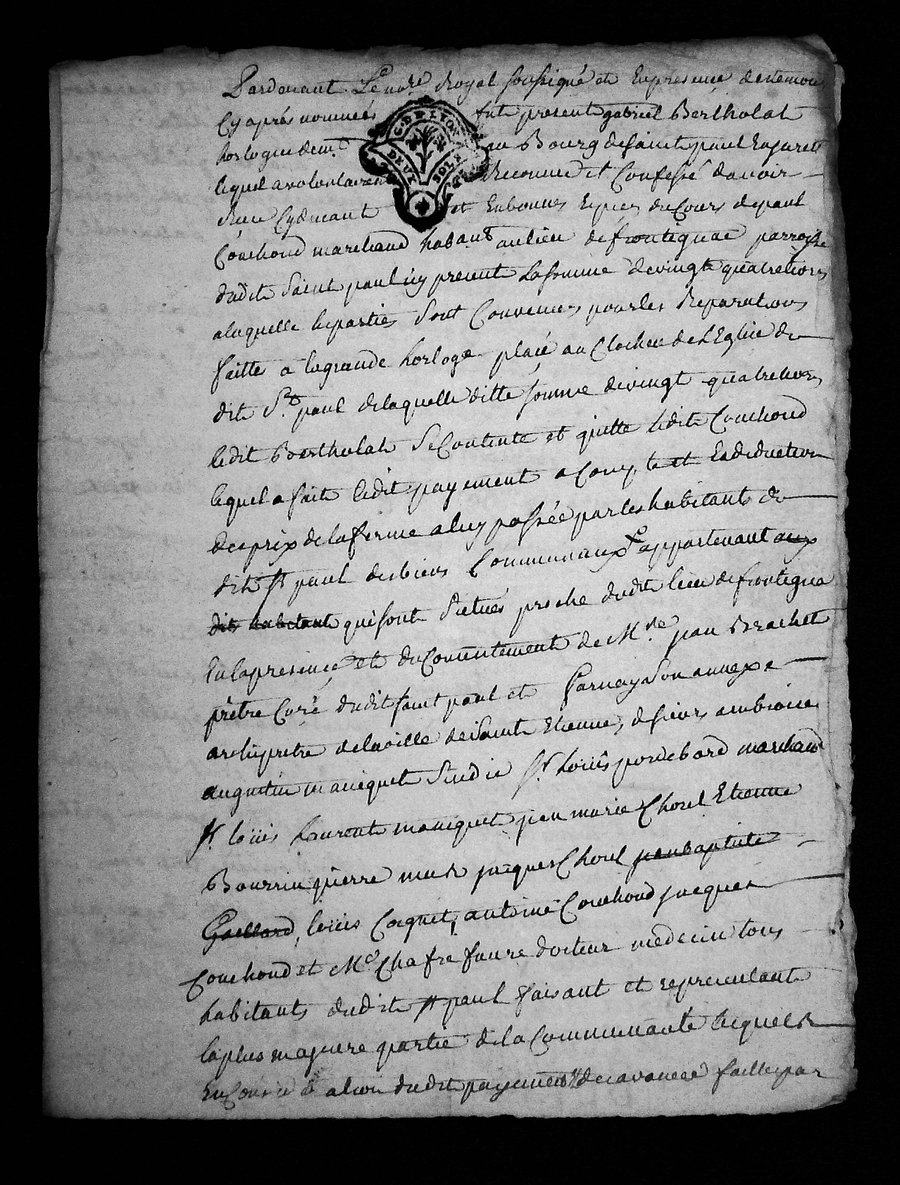 Pardevant Le no.re Royal soussigné et En presence des temoins
Cy après nommés fut present gabriel Bertholat
horloguer dem.t au Bourg de saint paul En Jarest
lequel a volontairem.t Reconnu et Confessé d'avoir
Receu Cydevant et En bonnes Espèces du Cours de paul
Couchoud marchand habitant au lieu de frontignac parroisse
dudit Saint paul icy present La somme de vingt quatre livres
a laquelle les parties Sont Convenues pour les Reparations
faitte a la grande horloge placé au Clocher de l'Eglise du
dit S.t paul de laquelle ditte somme de vingt quatre livres
ledit Bertholat Se Contente et quitte ledit Couchoud
lequel a fait ledit payement a Compte et En deduction
des prix de la ferme a luy passée par les habitants du
dit S.t paul des biens Communaux appartenant aux
dits habitant qui sont Situés proche dudit lieu de frontigna
En la presence et du Consentement de M.re jean Brachet
prêtre Curé dudit saint paul et Farnay Son annexe
archiprêtre de la ville de Saint Etienne, de sieurs ambroise
augustin maniquet Sindic S.r Loüis pordebard marchand
S.r loüis Laurent maniquet jean marie Chorel Etienne
Bourrin pierre jacques Chorel jean baptiste
Gaillard, loüis Coignet, antoine Couchoud jacques
Couchoud et M.e Chafre faure docteur medecin tous
habitants dudit S.t paul faisant et representant
la plus majeure partie de la Communauté lesquels
dudit payement faitte par